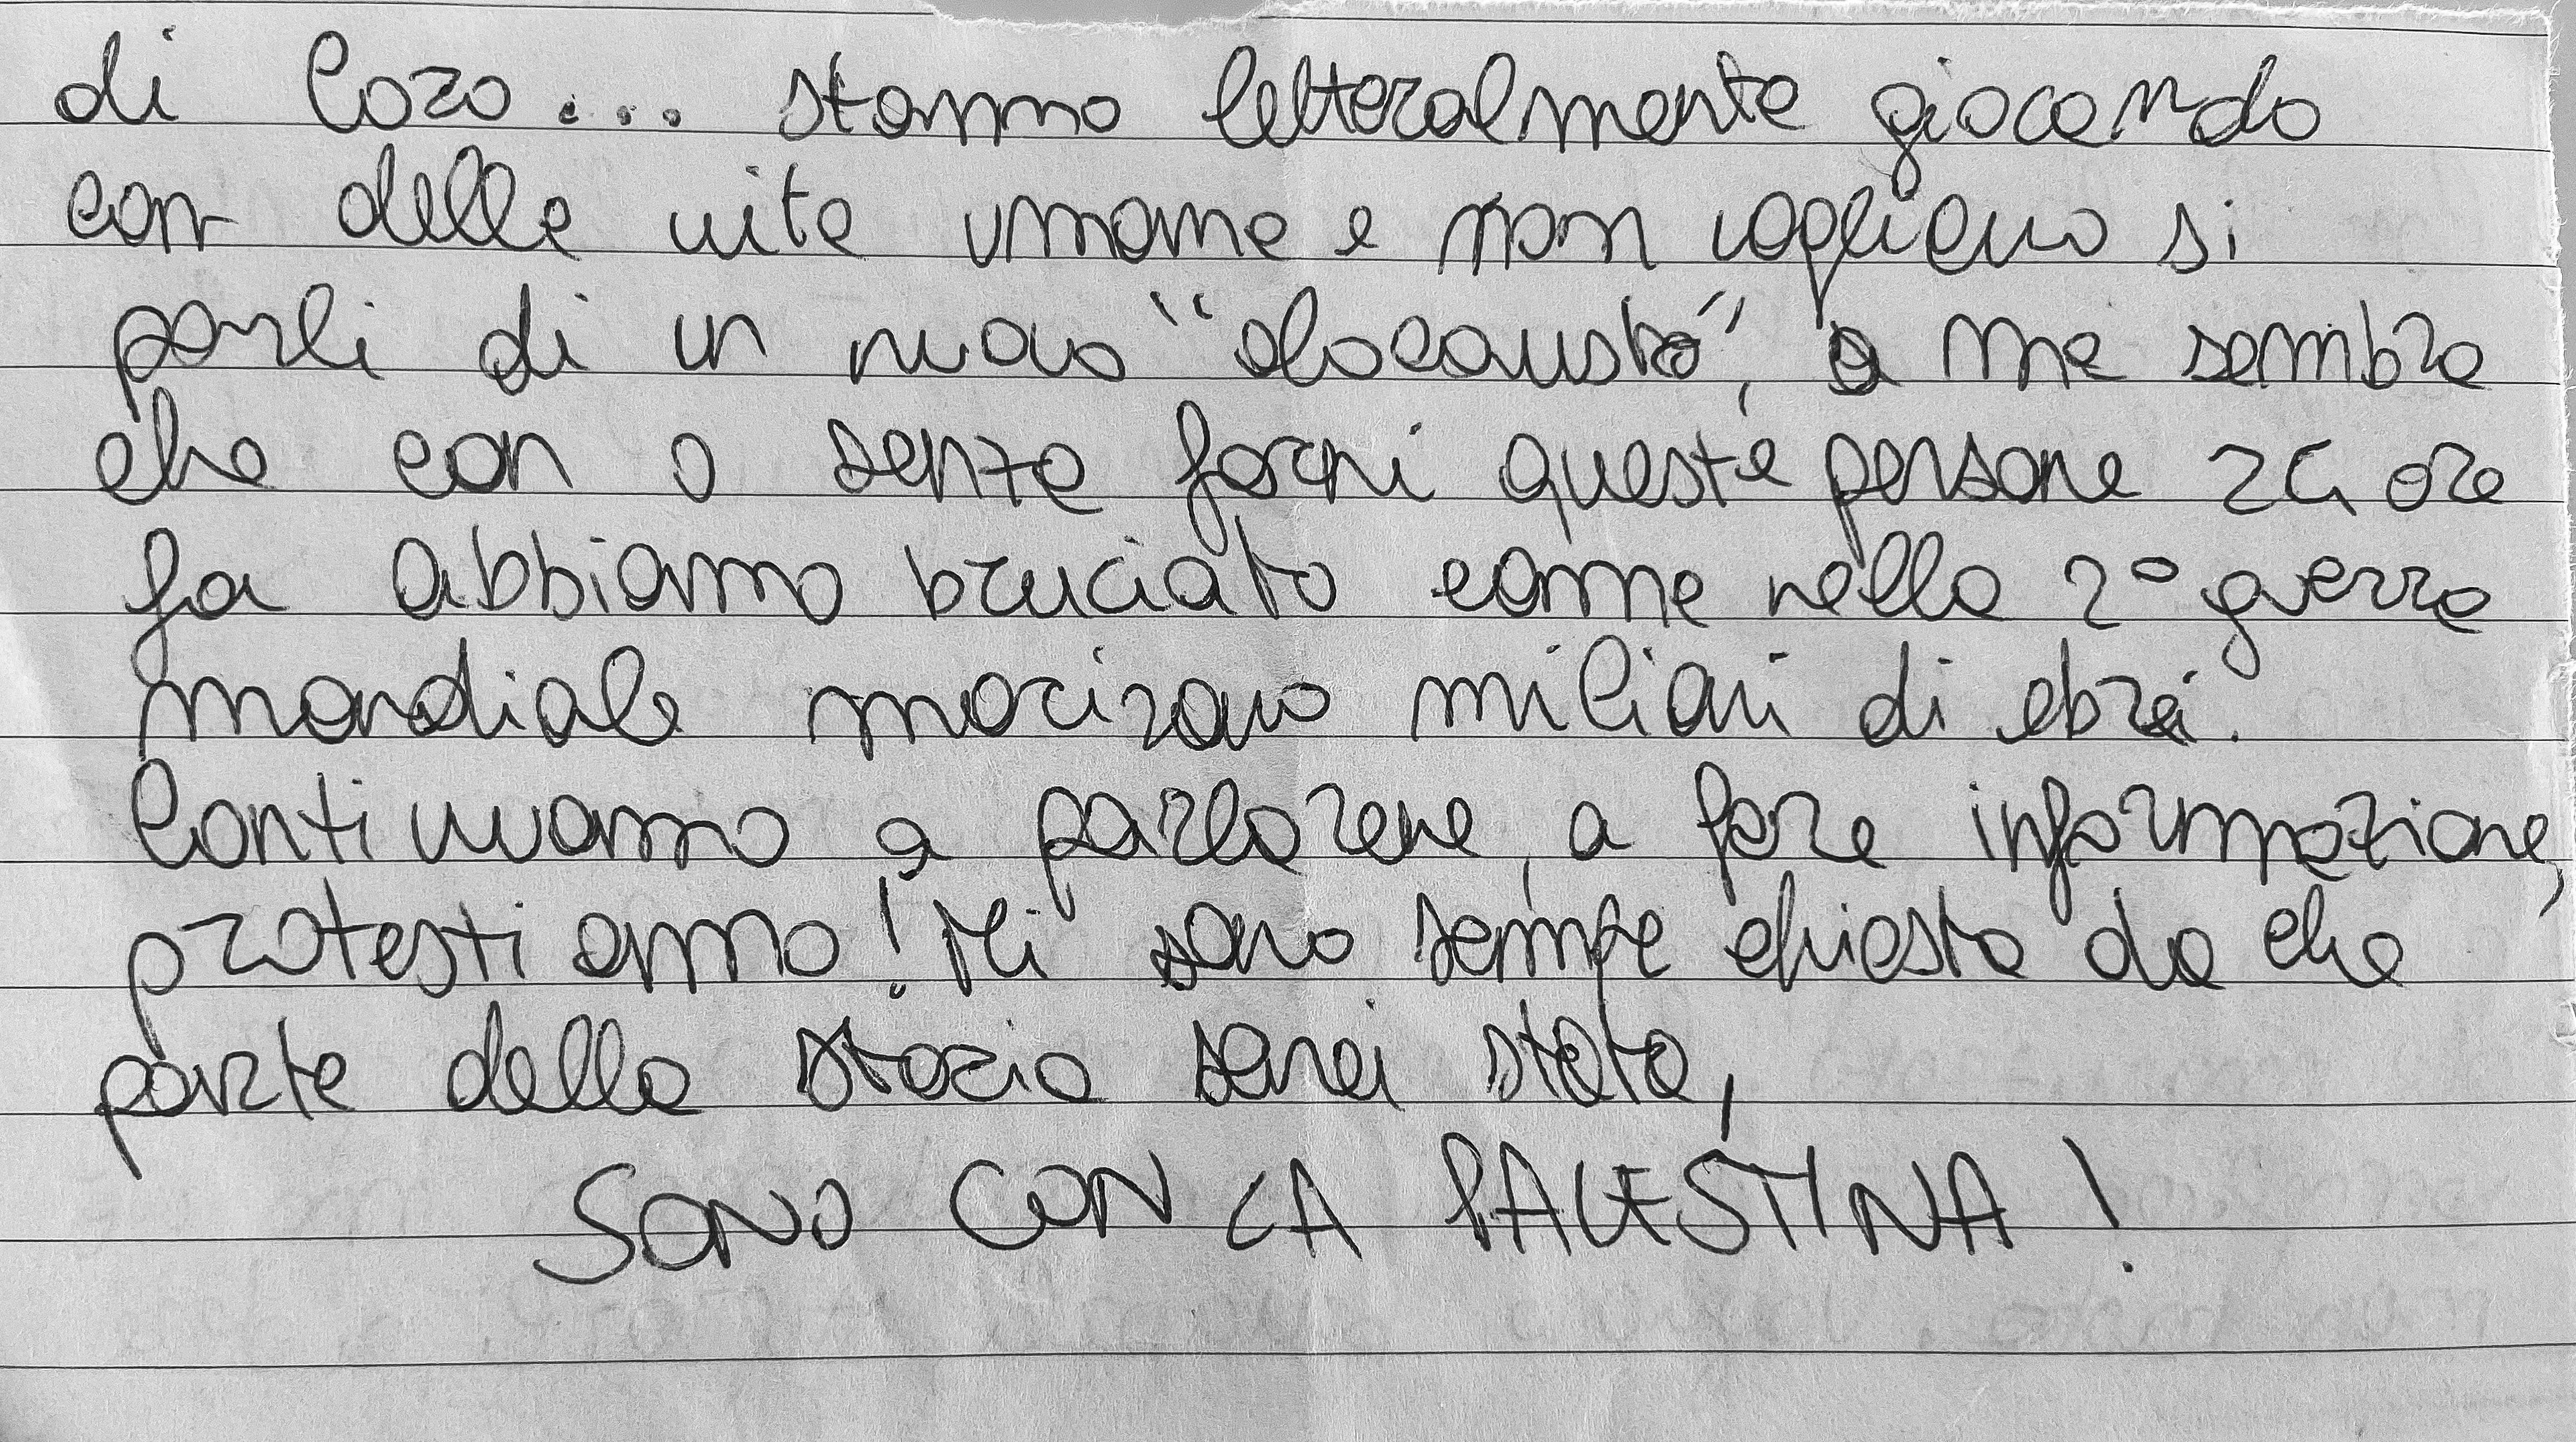 di loro... stanno letteralmente giocando
con delle vite umane e non vogliono si
parli di un nuovo "olocausto", a me sembra
che con o senza forni queste persone 24 ore
fa abbiamo bruciato come nella 2° guerra
mondiale morirono milioni di ebrei.
Continuiamo a parlarene, a fare informazione,
protestiamo! Mi sono sempre chiesta da che
parte della storia sarei stata,
SONO CON LA PALESTINA!